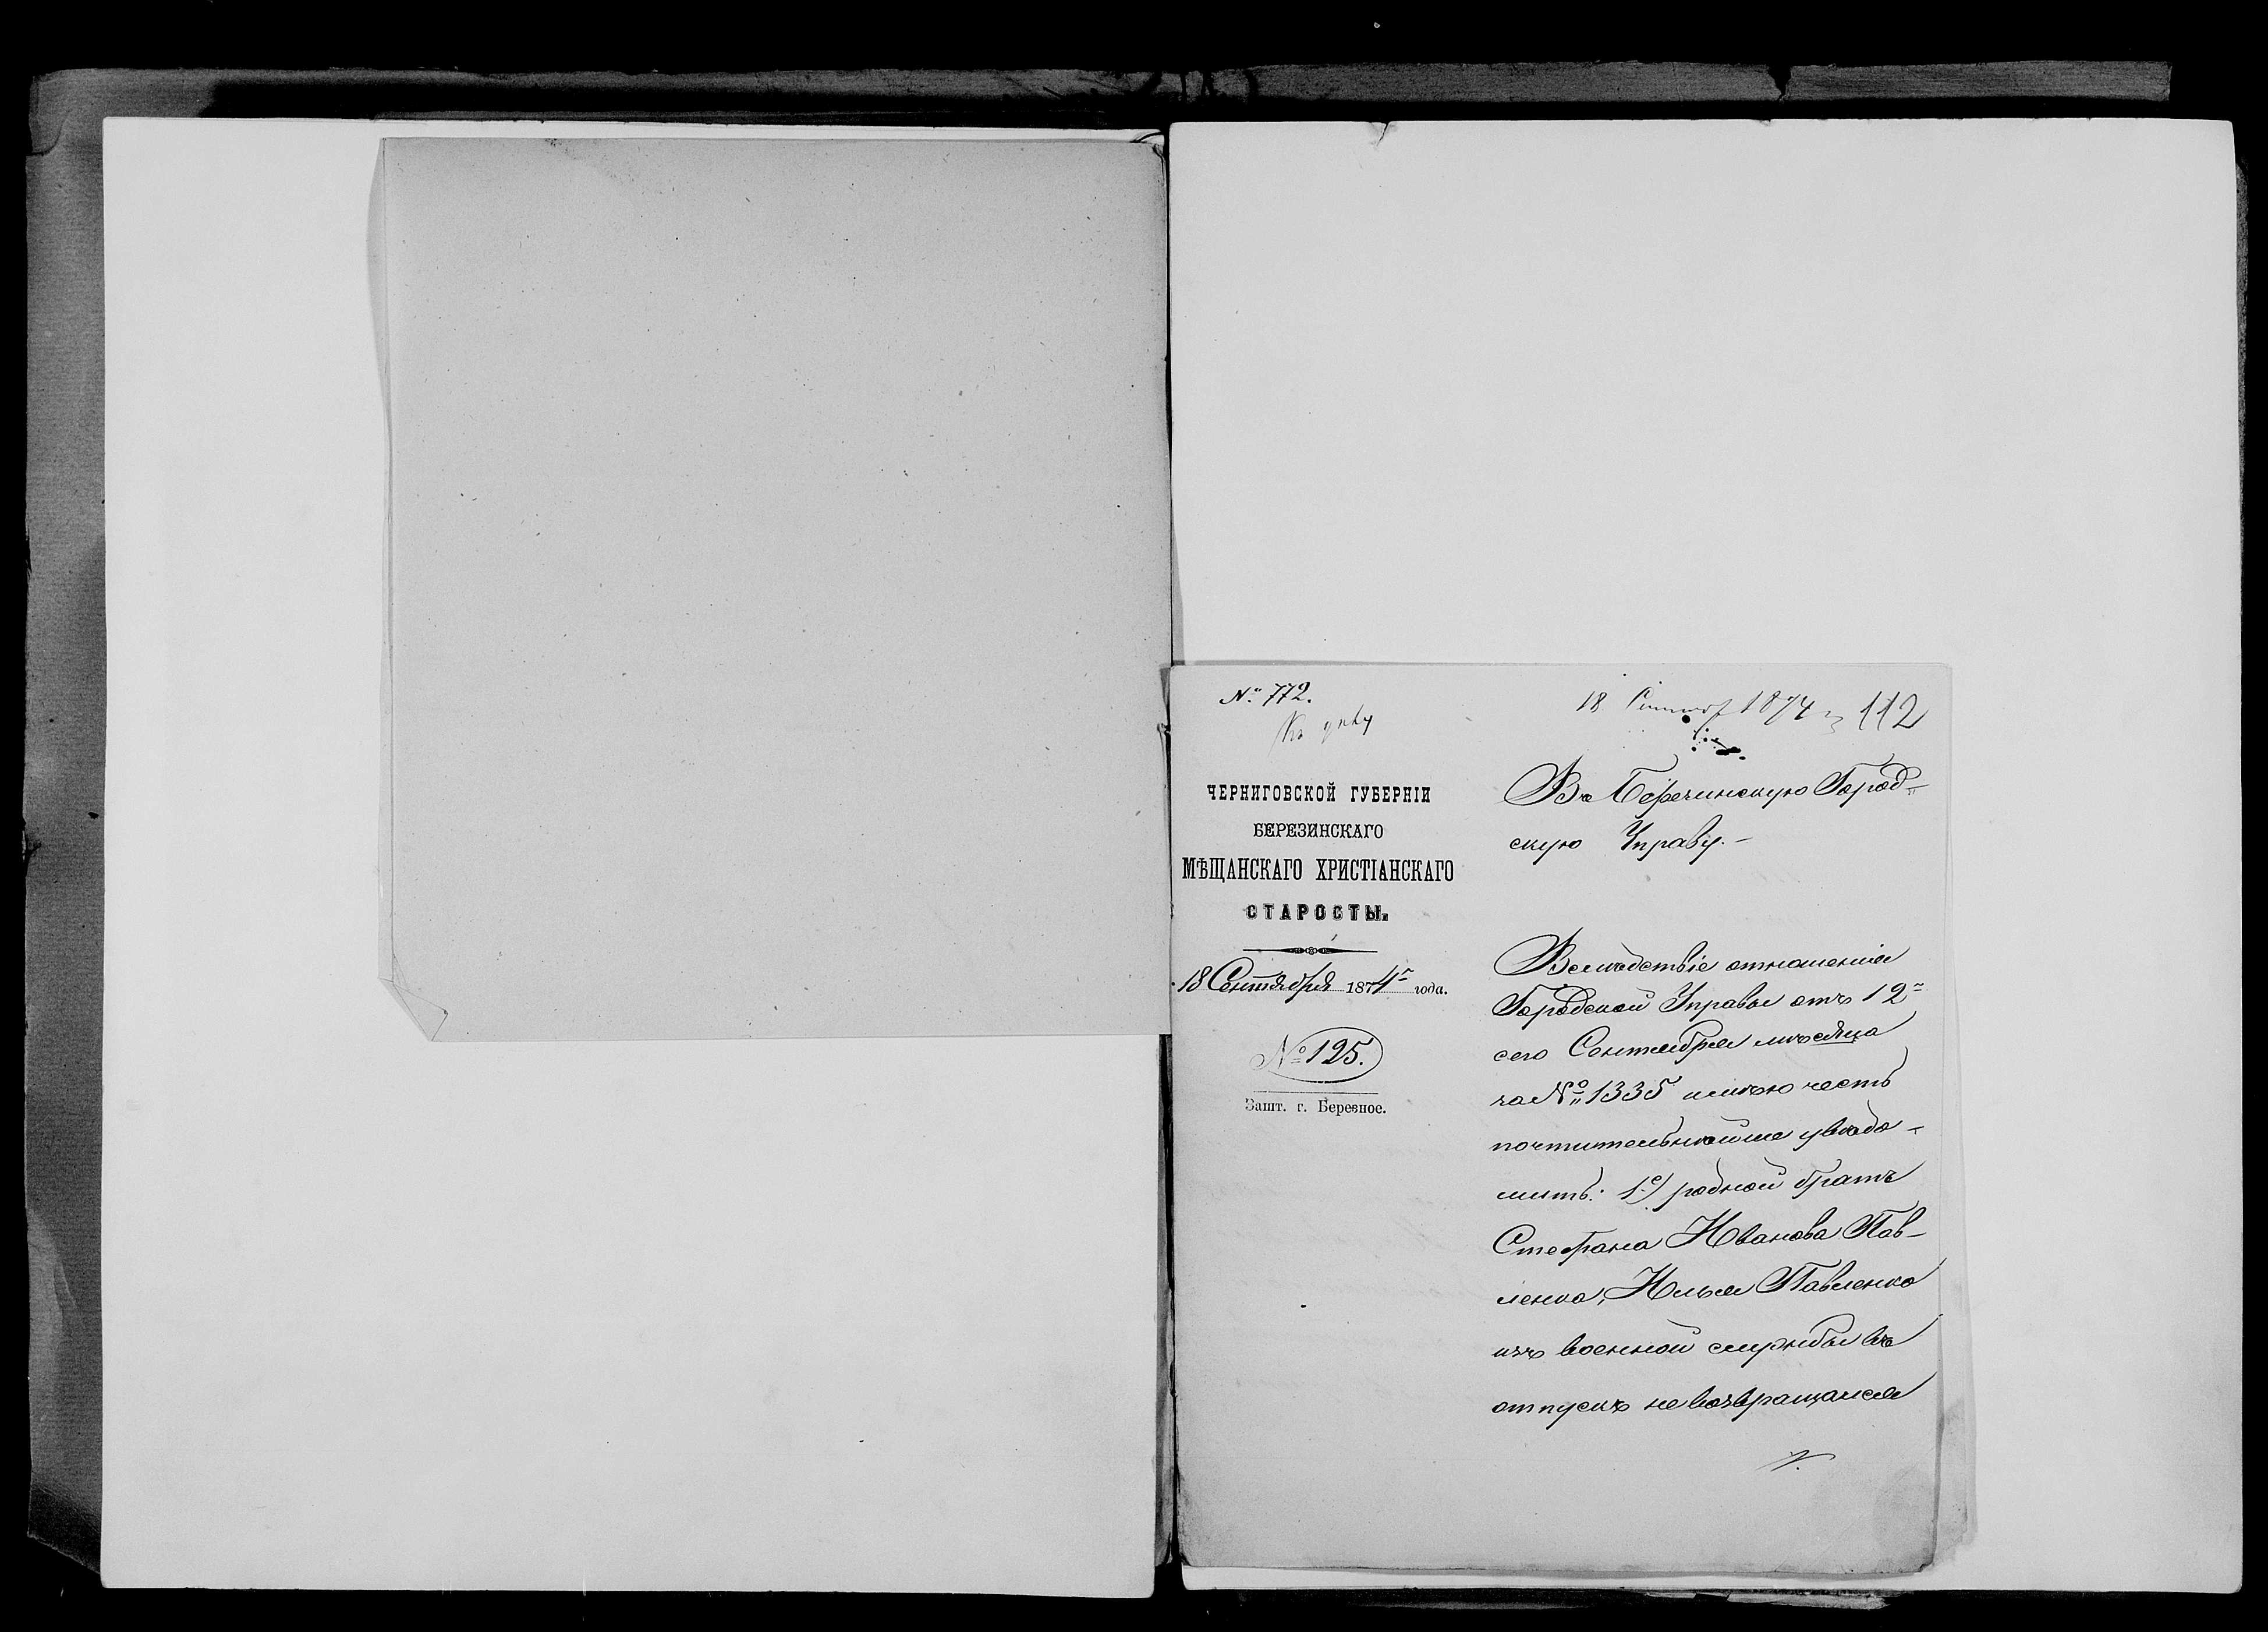 № 772.
Къ дѣлу
18 Сентяб 1874 г. 112
ЧЕРНИГОВСКОЙ ГУБЕРНІИ
БЕРЕЗИНСКАГО
МѢЩАНСКАГО ХРИСТІАНСКАГО
СТАРОСТЫ.
18 Сентября 1874 г. года.
№ 125.
Зашт. г. Березное.
Въ Березинскую Город-
скую Управу.-
Вслѣдствіе отношенія
Городской Управы отъ 12
сего Сентября мѣсяца
за № 1335 имѣю честь
почтительнѣйше увѣдо-
мить: 1е) родной братъ
Стефана Иванова Пав-
ленка, Илья Павленко
изъ военной службы въ
отпускъ не возвращался